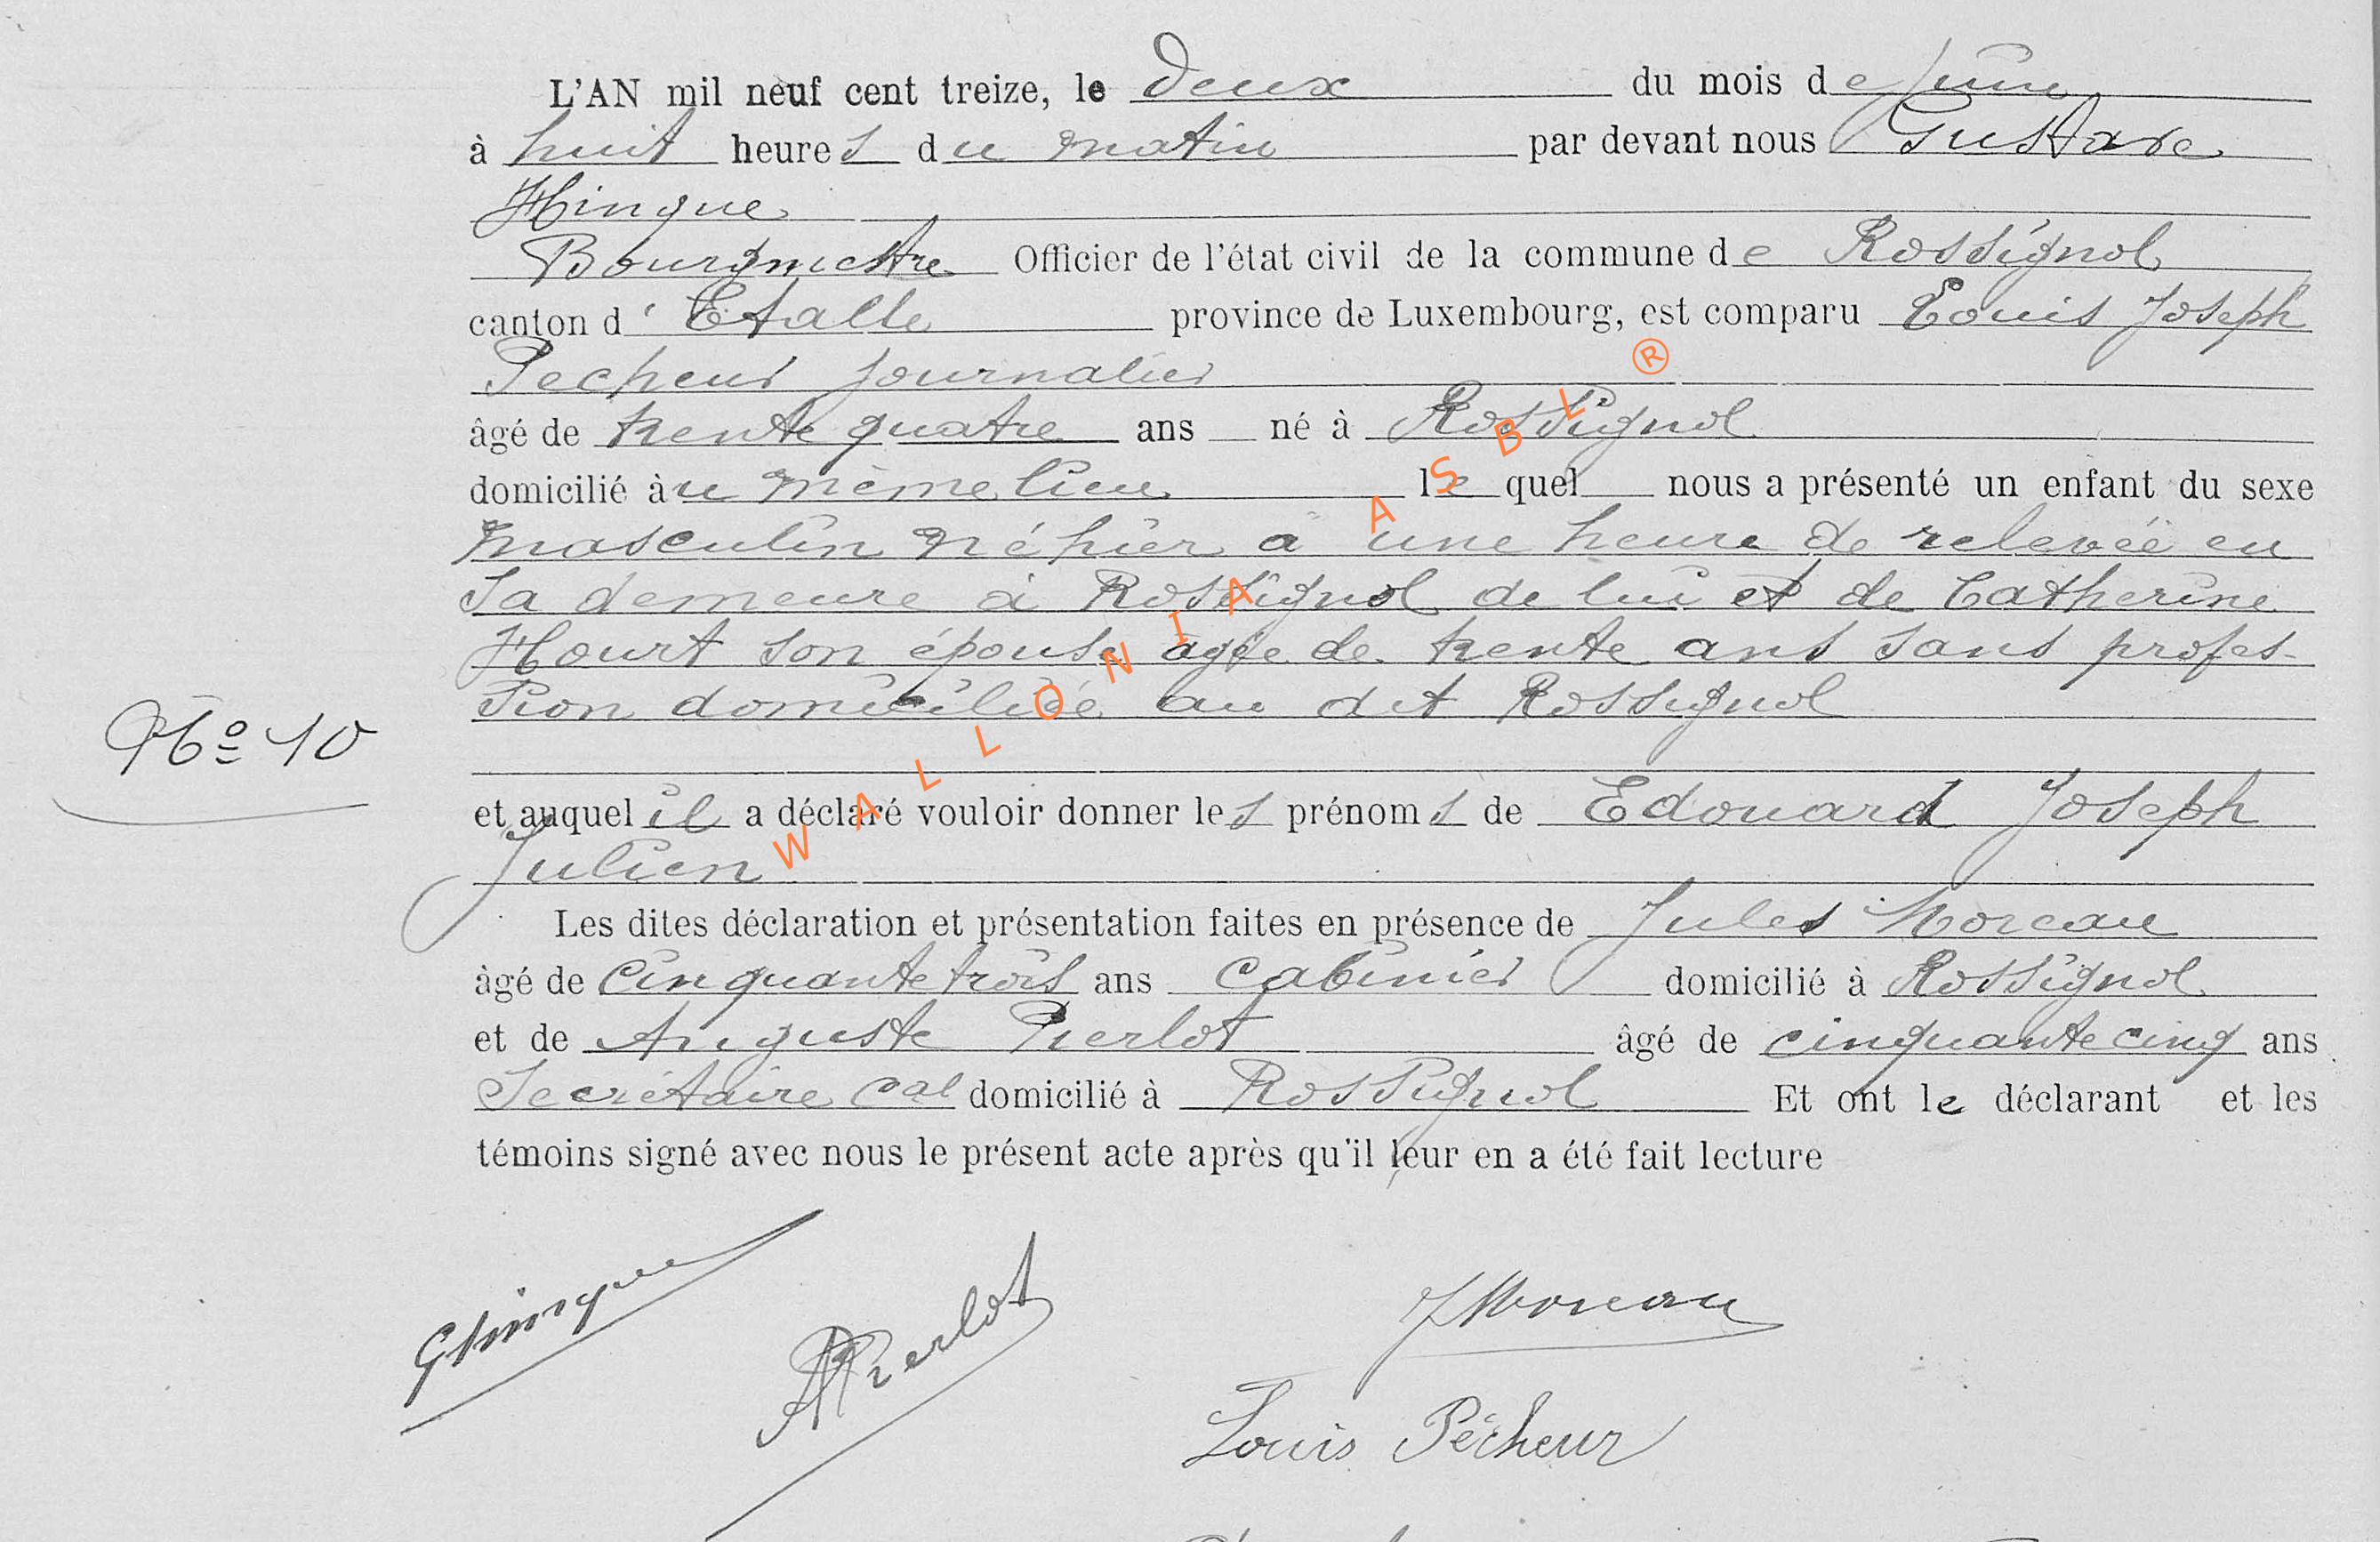 L'AN mil neuf cent treize, le deux du mois de juin
à huit heures du matin par devant nous Gustave
Hinque
Bourgmestre Officier de l'état civil de la commune de Rossignol
canton d'Etalle province de Luxembourg, est comparu Louis Joseph
Pecheur journalier
âgé de trente quatre ans né à Rossignol
domicilié au même lieu lequel nous a présenté un enfant du sexe
masculin né hier à une heure de relevée en
sa demeure à Rossignol de lui et de Catherine
Hourt son épouse âgée de trente ans sans profes-
sion domiciliée au dit Rossignol
No 10
et auquel il a déclaré vouloir donner les prénoms de Edouard Joseph
Julien
Les dites déclaration et présentation faites en présence de Jules Moreau
àgé de cinquante trois ans domicilié à Rossignol
et de Auguste Pierlot âgé de cinquante cinq ans
Secrétaire cal domicilié à Rossignol Et ont le déclarant et les
témoins signé avec nous le présent acte après qu'il leur en a été fait lecture
GHinque
APierlot
JMoreau
Louis Pécheur
WALLONIA ASBL ®